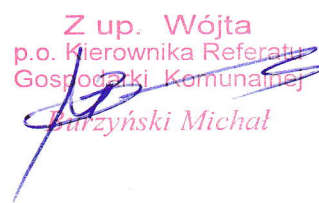 Z up. Wójta
p.o. Kierownika Referatu
Gospodarki Komunalnej
Burzyński Michał